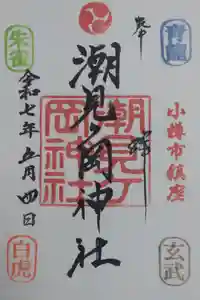 奉拝
小樽市鎮座
潮見ヶ岡神社
潮見ヶ岡神社
令和七年五月四日
青龍
朱雀
白虎
玄武